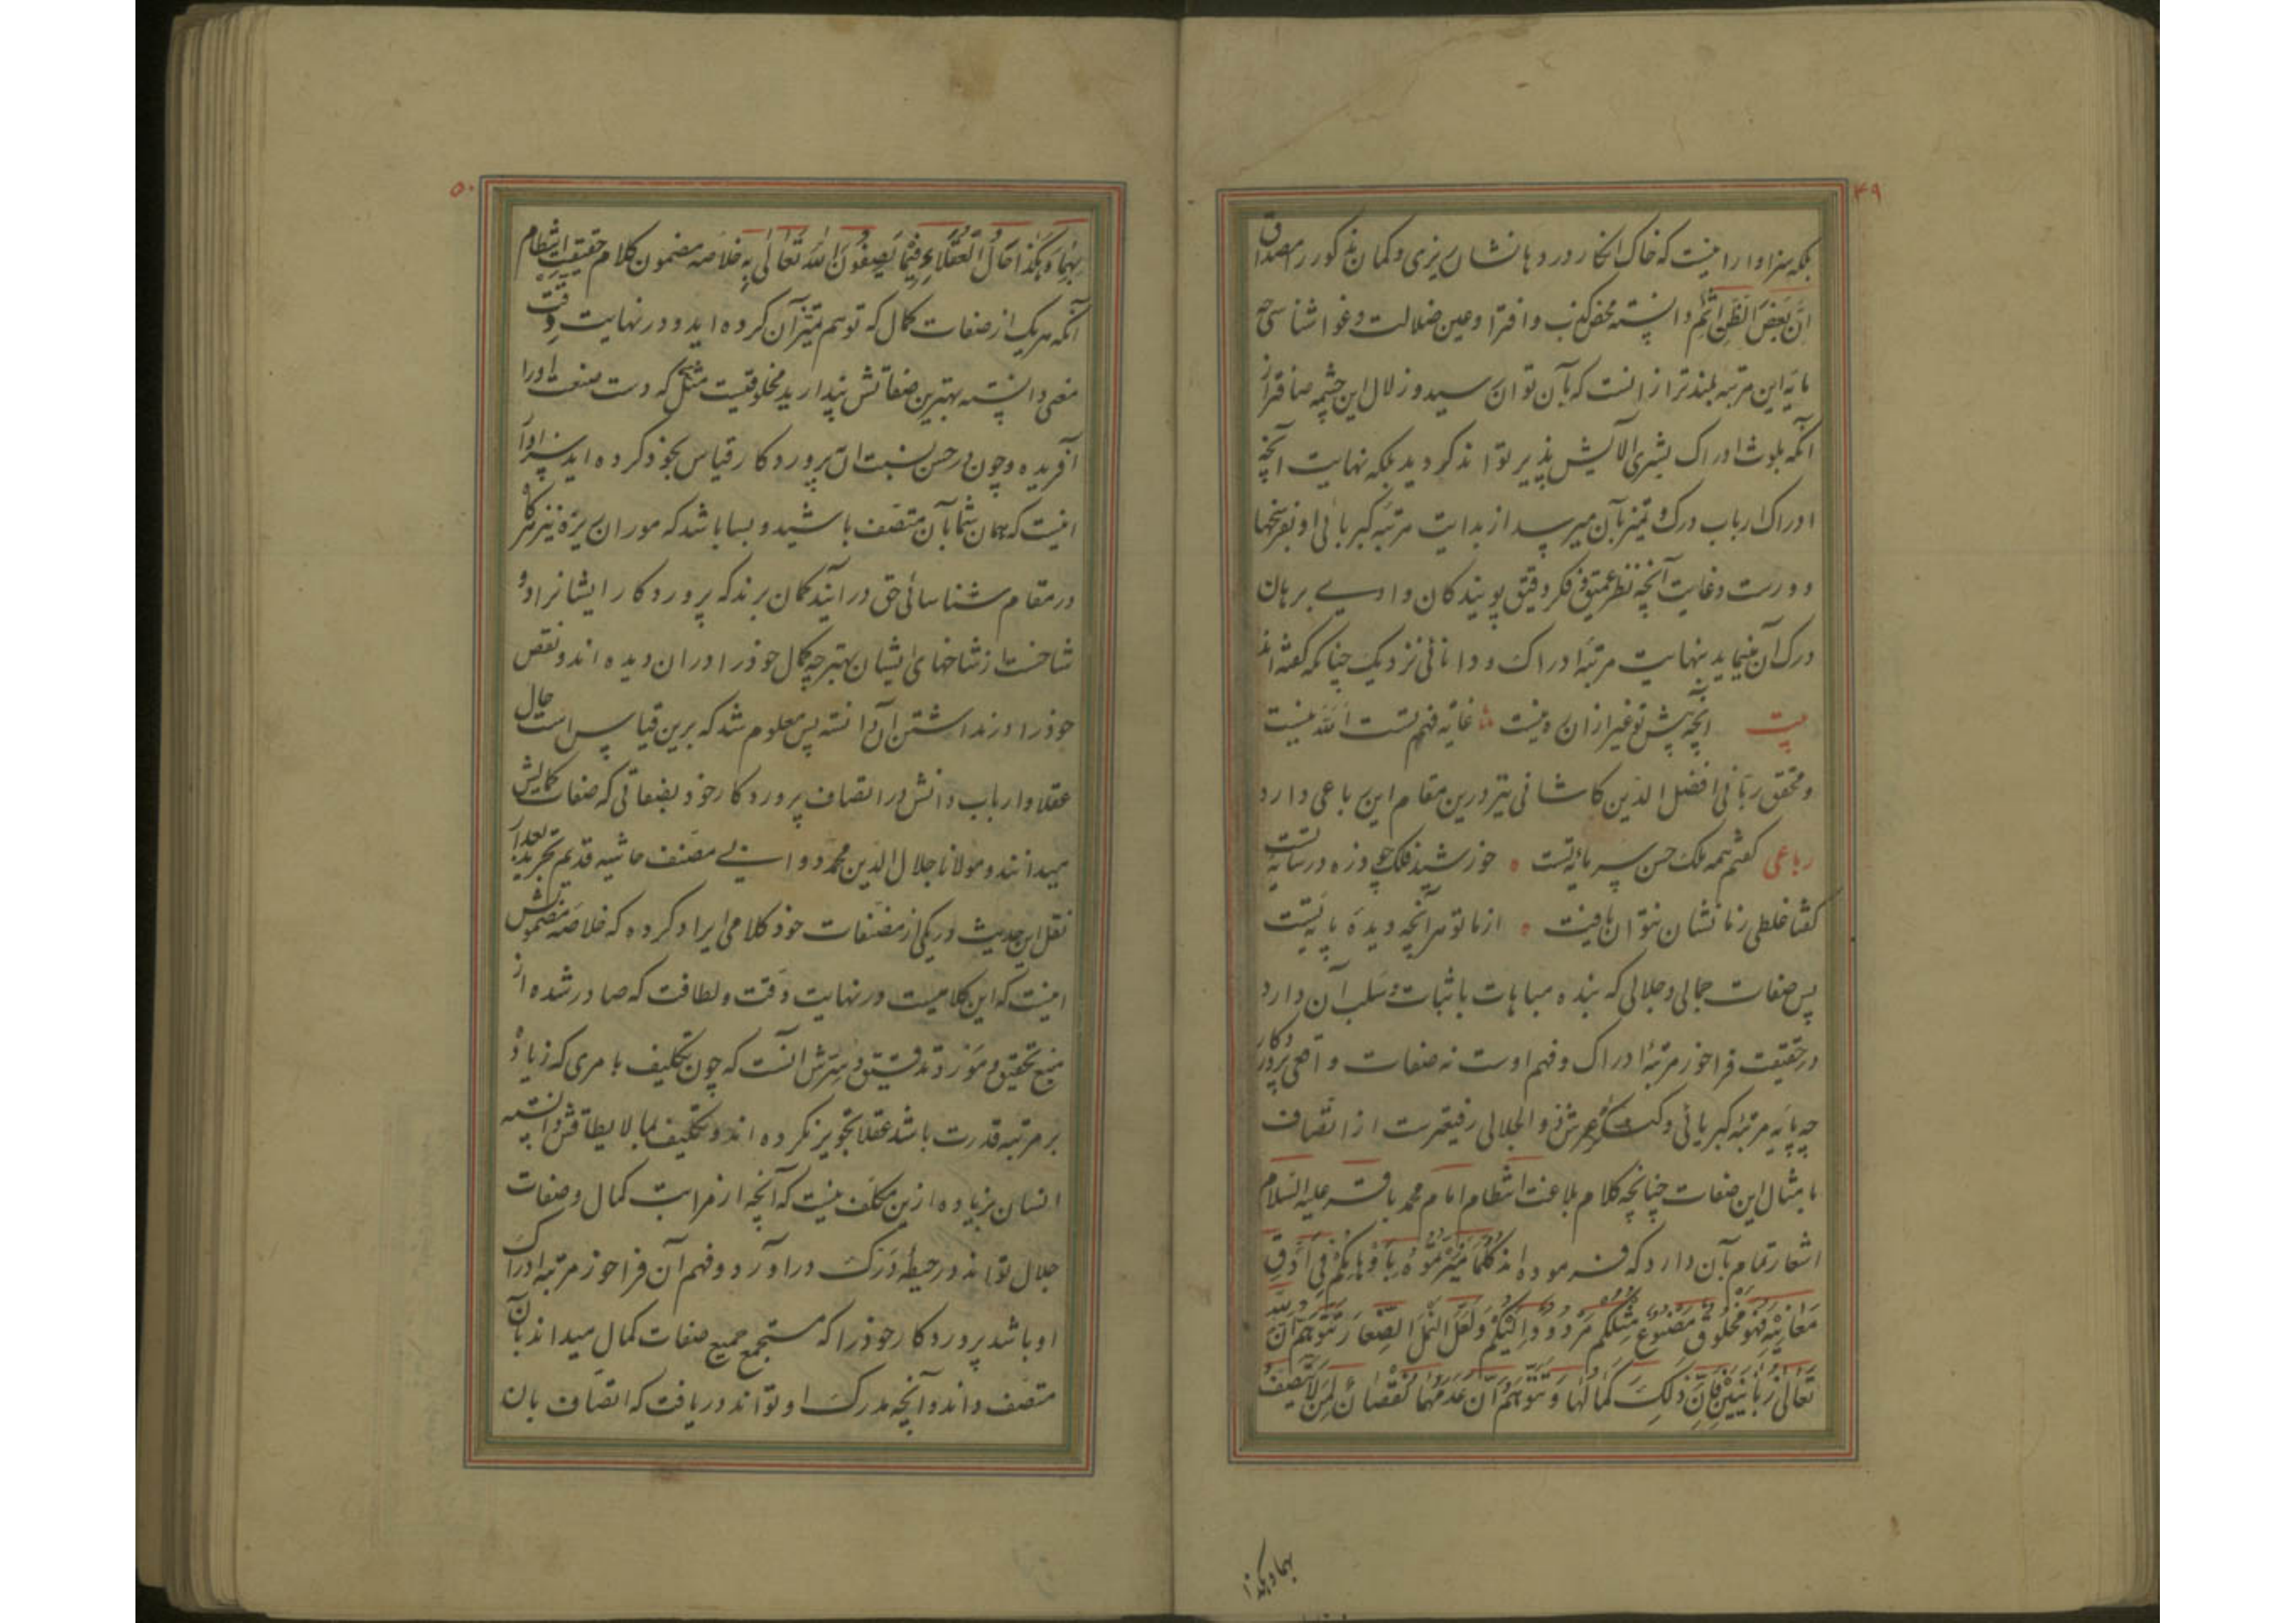 ۴۹
بلکه سزاوار اینست که خاک انکار در دهانشان ریزی و کمان مذکور را مصداق
ان بَعْضَ الظَنِ اِثْمٌ دانسته محض کذب و افترا و عین ضلالت و غوا شناسی چه
پایه این مرتبه بلندتر از انست که بآن توان رسید و زلال این چشمه صافتر از
آنکه بلوث ادراک بشری الایش پذیر تواند کردید بلکه نهایت آنچه
ادراک ارباب درک و تمیز بآن میرسد از بدایت مرتبه کبریائی او بفرسخها
دورست و غایت آنچه نظر عمیق و فکر دقیق پویندکان وادی برهان
درک آن مینماید بنهایت مرتبهٔ ادراک و دانائی نزدیک چنانکه کفته اند
بیت آنچه پیش تو غیر ازان ره نیست غایة فهم تست اللّه نیست
و محقق ربّانی افضل الدین کاشانی نیز درین مقام این رباعی دارد
رباعی کفتم همه ملک حسن سرمایهٔ تست خورشید فلک چو ذره در سایهٔ تست
کفتا غلطی زما نشان نتوان یافت از ما تو هر آنچه دیدهٔ پایهٔ تست
پس صفات جمالی و جلالی که بنده مباهات باثبات و سلب آن دارد
در حقیقت فراخور مرتبهٔ ادراک و فهم اوست نه صفات واقعی پروردکار
چه پایه مرتبه کبریائی و کنکره عرش ذو الجلالی رفیعترست از اتّصاف
بامثال این صفات چنانچه کلام بلاغت انتظام امام محمد باقر علیه السلام
اشعار تمام بآن دارد که فرموده اند کُلَّمَا مَیَّزْتُمُوْهُ بِاَوْهَامِکُمْ فِی اَدَقِّ
مَعَانِیْهِ فَهُوَ مَخْلُوْقٌ مَصْنُوْعٌ مِثْلُکُمْ مَرْدُوْدٌ اِلَیْکُمْ وَلَعَلَّ النَمْلَ الصِّغَارَ تَتَوَهَّمُ اَنَّ لِلّٰهِ
تَعَالٰی زُبَانَیَیْنِ فَاِنَّ ذٰلِکَ کَمَالُهَا وَ تَتَوَهَّمُ اَنَّ عَدَمَهَا نُقْصَانٌ لِمَنْ لَا یَتَّصِفُ
بهما و هکذا
۵۰
بِهِمَا وَ هٰکَذَا حَالُ الْعُقَلَاءِ فِیْمَا یَصِفُوْنَ اللّٰهَ تَعَالٰی بِهٖ خلاصه مضمون کلام حقیقت انتظام
آنکه هریک از صفات کمال که توهم تمیز آن کرده اید و در نهایت دقت
معنی دانسته بهترین صفاتش پندارید مخلوقیست مثل شما که دست صنعت اورا
آفریده و چون در حسن نسبت ان پروردکار قیاس بخود کرده اید سزاوار
اینست که همان شما بآن متصف باشید و بسا باشد که موران ریزه نیز هرکاه
در مقام شناسائی حق درآیند کمان برند که پروردکار ایشانرا دو
شاخست از شاخهای ایشان بهتر چه کمال خودرا دران دیده اند و نقص
خودرا در نداشتن آن دانسته پس معلوم شد که برین قیاس است حال
عقلا و ارباب دانش در اتصاف پروردکار خود بصفاتی که صفات کمالش
میدانند و مولانا جلال الدین محمد دوانی مصنف حاشیه قدیم تجرید بعد از
نقل این حدیث در یکی از مصنفات خود کلامی ایراد کرده که خلاصه مضمونش
اینست که این کلامیست در نهایت دقت و لطافت که صادر شده از
منبع تحقیق و مورد تدقیق و سِرّش آنست که چون تکلیف بامری که زیاده
بر مرتبه قدرت باشد عقلا تجویز نکرده اند و تکلیف بما لا یطاقش دانسته
انسان بزیاده ازین مکلف نیست که آنچه از مراتب کمال و صفات
جلال تواند در حیطهٔ دَرک درآورد و فهم آن فراخور مرتبه ادراک
او باشد پروردکار خودرا که مستجمع جمیع صفات کمال میداند بآن
متصف داند و آنچه مدرک او تواند دریافت که اتصاف بان